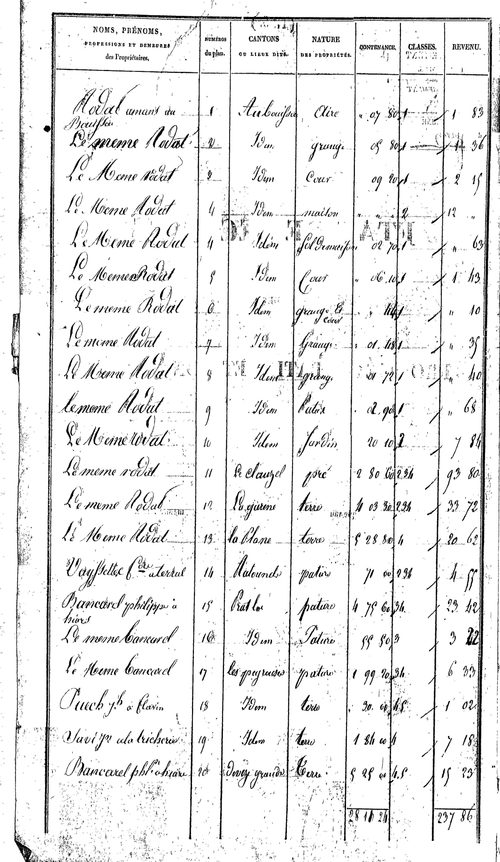 NOMS, PRÉNOMS, PROFESSIONS ET DEMEURES des Propriétaires. NUMÉROS du plan. CANTONS OU LIEUX DITS. NATURE DES PROPRIÉTÉS. CONTENANCE. CLASSES. REVENU.
Rodat amans du 1 Aubouissou Aire " 07 80 1 1 83
Bouissou
Le meme Rodat 2 Idem grange 05 80 1 1 36
Le Meme rodat 3 Idem Cour 09 20 1 2 15
Le Meme Rodat 4 Idem maison " " 2 12 "
Le Meme Rodat 4 Idem Sol de maison 02 70 1 " 63
Le Meme Rodat 5 Idem Cour " 06 10 1 1 43
Le meme Rodat 6 Idem grange et cour " " 44 1 " 10
Le meme Rodat 7 Idem Grange " 01 48 1 " 35
Le Meme Rodat 8 Idem grange 01 72 1 " 40
le meme Rodat 9 Idem Patis 02 90 1 " 68
Le Meme rodat 10 Idem Jardin 20 10 2 7 84
Le meme rodat 11 Le Clauzel pré 2 80 60 234 93 80
Le meme Rodat 12 terre 4 03 30 234 33 72
Le Meme Rodat 13 la Plane terre 5 28 80 4 20 62
14 pature 71 00 234 4 55
Bancarel philippe à 15 Prat pature 4 75 60 34 23 42
Le meme bancarel 16 Idem Pature 55 50 3 3 22
Le Meme bancarel 17 pature 1 99 20 34 6 33
Puech à flavin 18 Idem terre " 30 00 45 1 02
19 Idem terre 1 84 00 4 7 18
Bancarel phil. 20 Terre 5 25 00 45 15 23
28 14 24 237 86